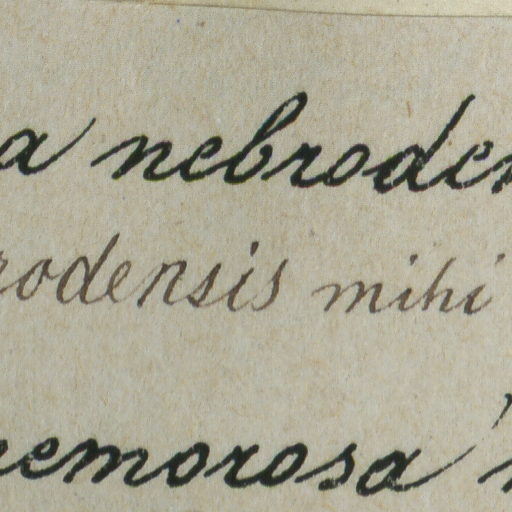 a nebroden
rodensis mihi
nemorosa